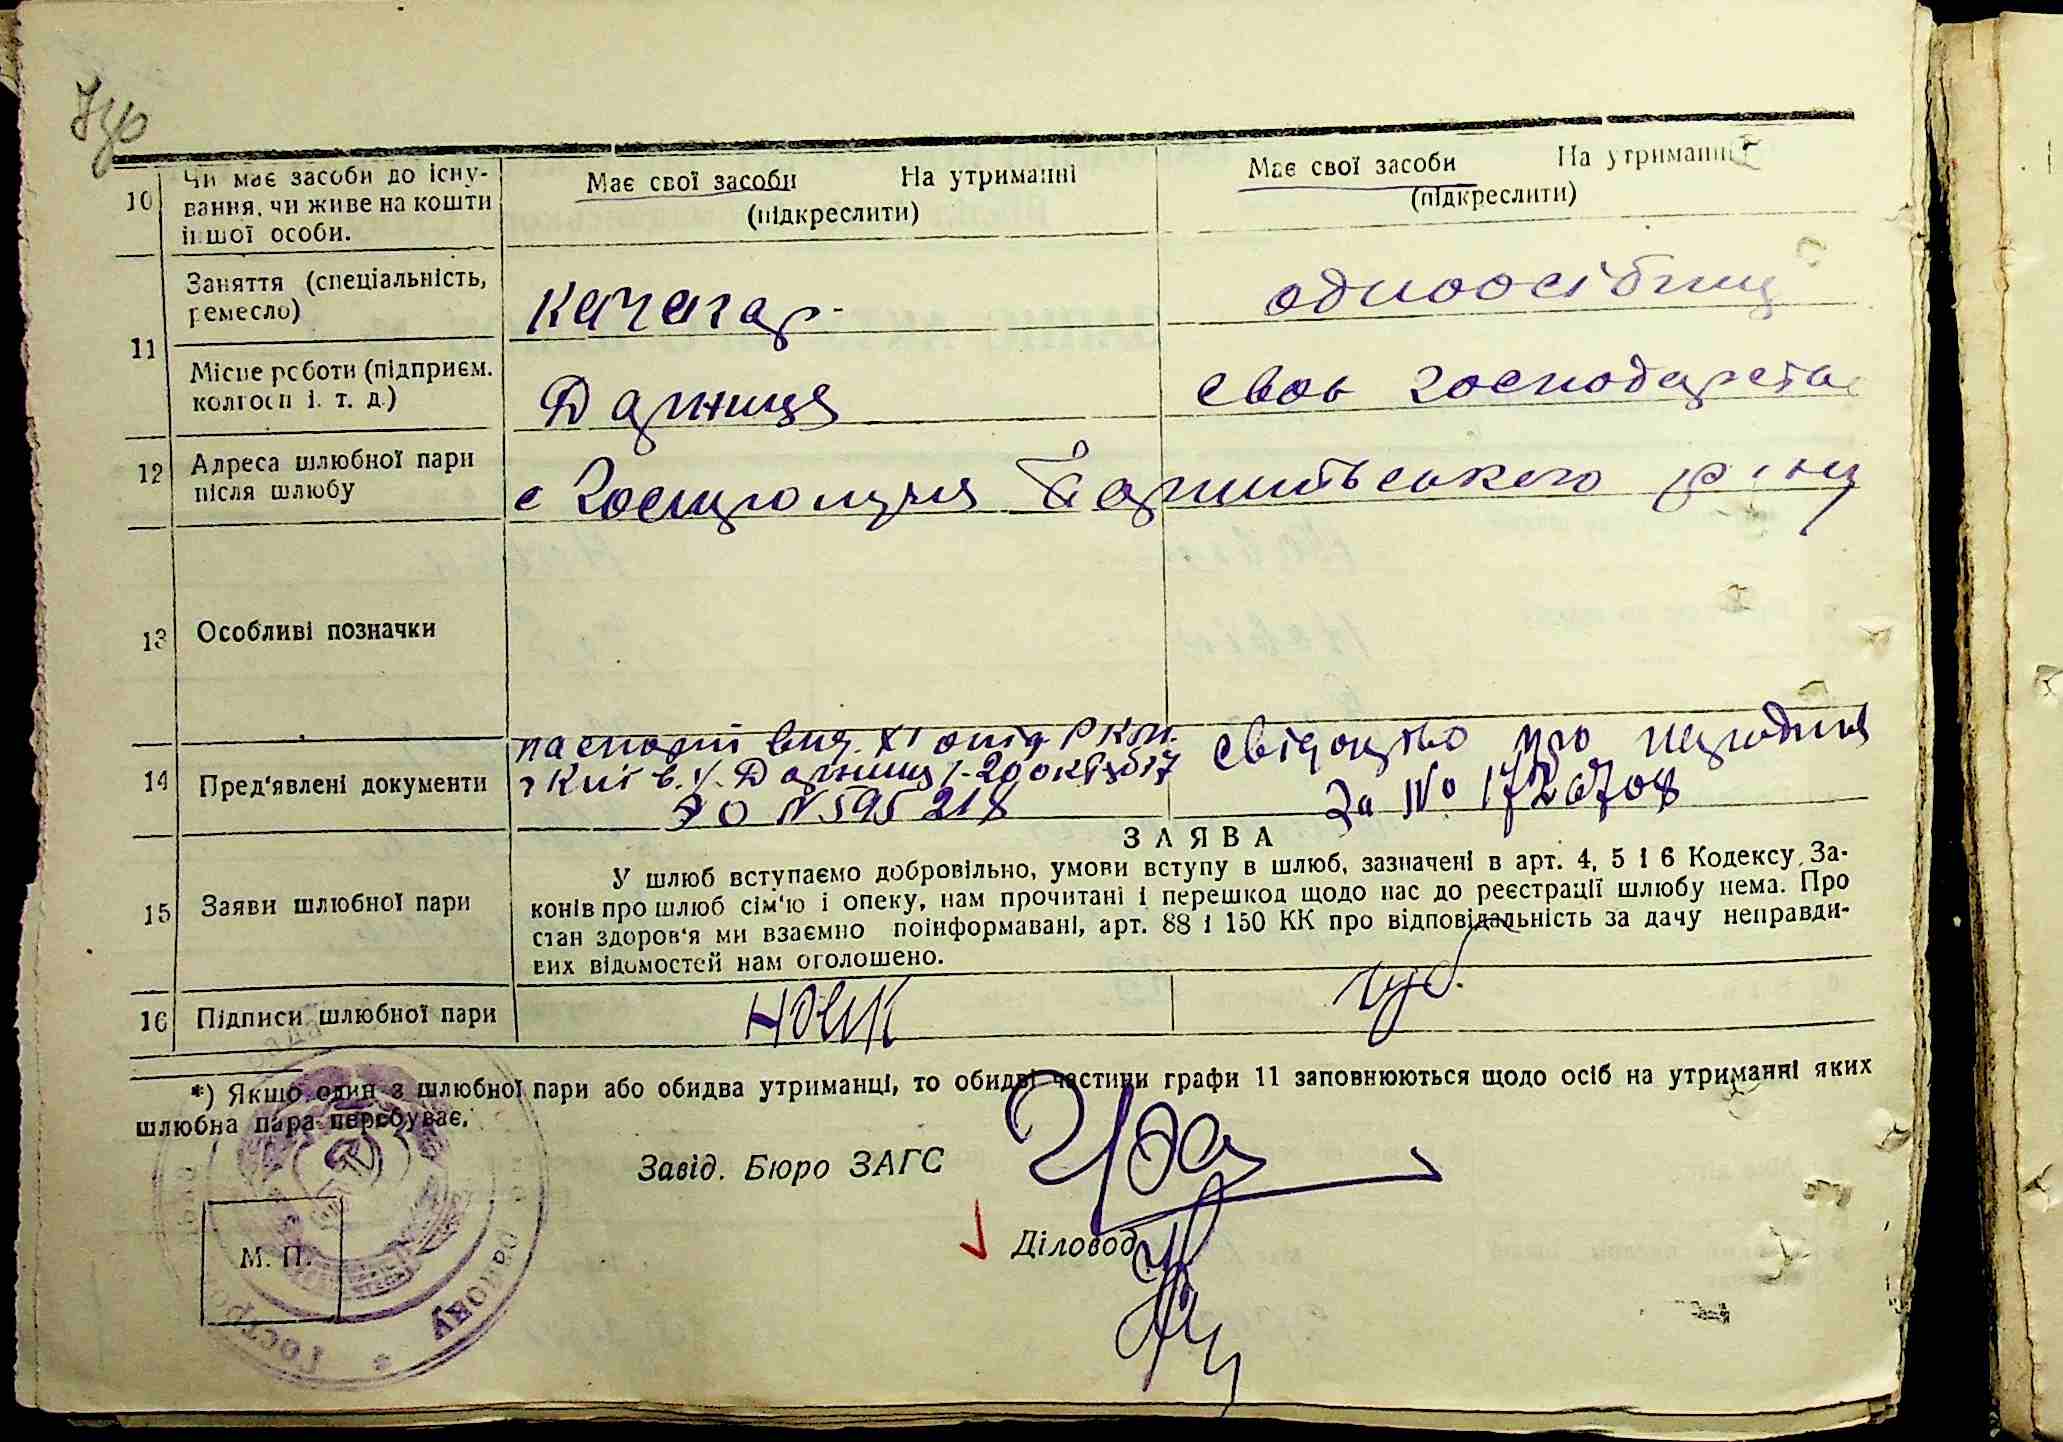 10 Чи має засоби до існу-
вання, чи живе на кошти
іншої особи.
Має свої засоби На утриманні
(підкреслити)
Має свої засоби На утриманні
(підкреслити)
11
Заняття (спеціальність,
ремесло)
качагар
одноосібниц
Місце роботи (підприєм.
колгосп і. т. д.)
Дарниця
своє господарство
12 Адреса шлюбної пари
після шлюбу
с Гостролуччя Баришівського р-ну
13 Особливі позначки
14 Пред'явлені документи
паспорт вид. XI від РКМ.
Київ Дарниц
ЭО N 595218
свідоцтво про народжня
За № 1726708
15 Заяви шлюбної пари
ЗАЯВА
У шлюб вступаємо добровільно, умови вступу в шлюб, зазначені в арт. 4, 5 і 6 Кодексу За-
конів про шлюб сім'ю і опеку, нам прочитані і перешкод щодо нас до реєстрації шлюбу нема. Про
стан здоров'я ми взаємно поінформавані, арт. 88 і 150 КК про відповідальність за дачу неправди-
вих відомостей нам оголошено.
16 Підписи шлюбної пари
*) Якщо один з шлюбної пари або обидва утриманці, то обидві частини графи 11 заповнюються щодо осіб на утриманні яких
шлюбна пара перебуває.
Завід. Бюро ЗАГС
Діловод
М. П.